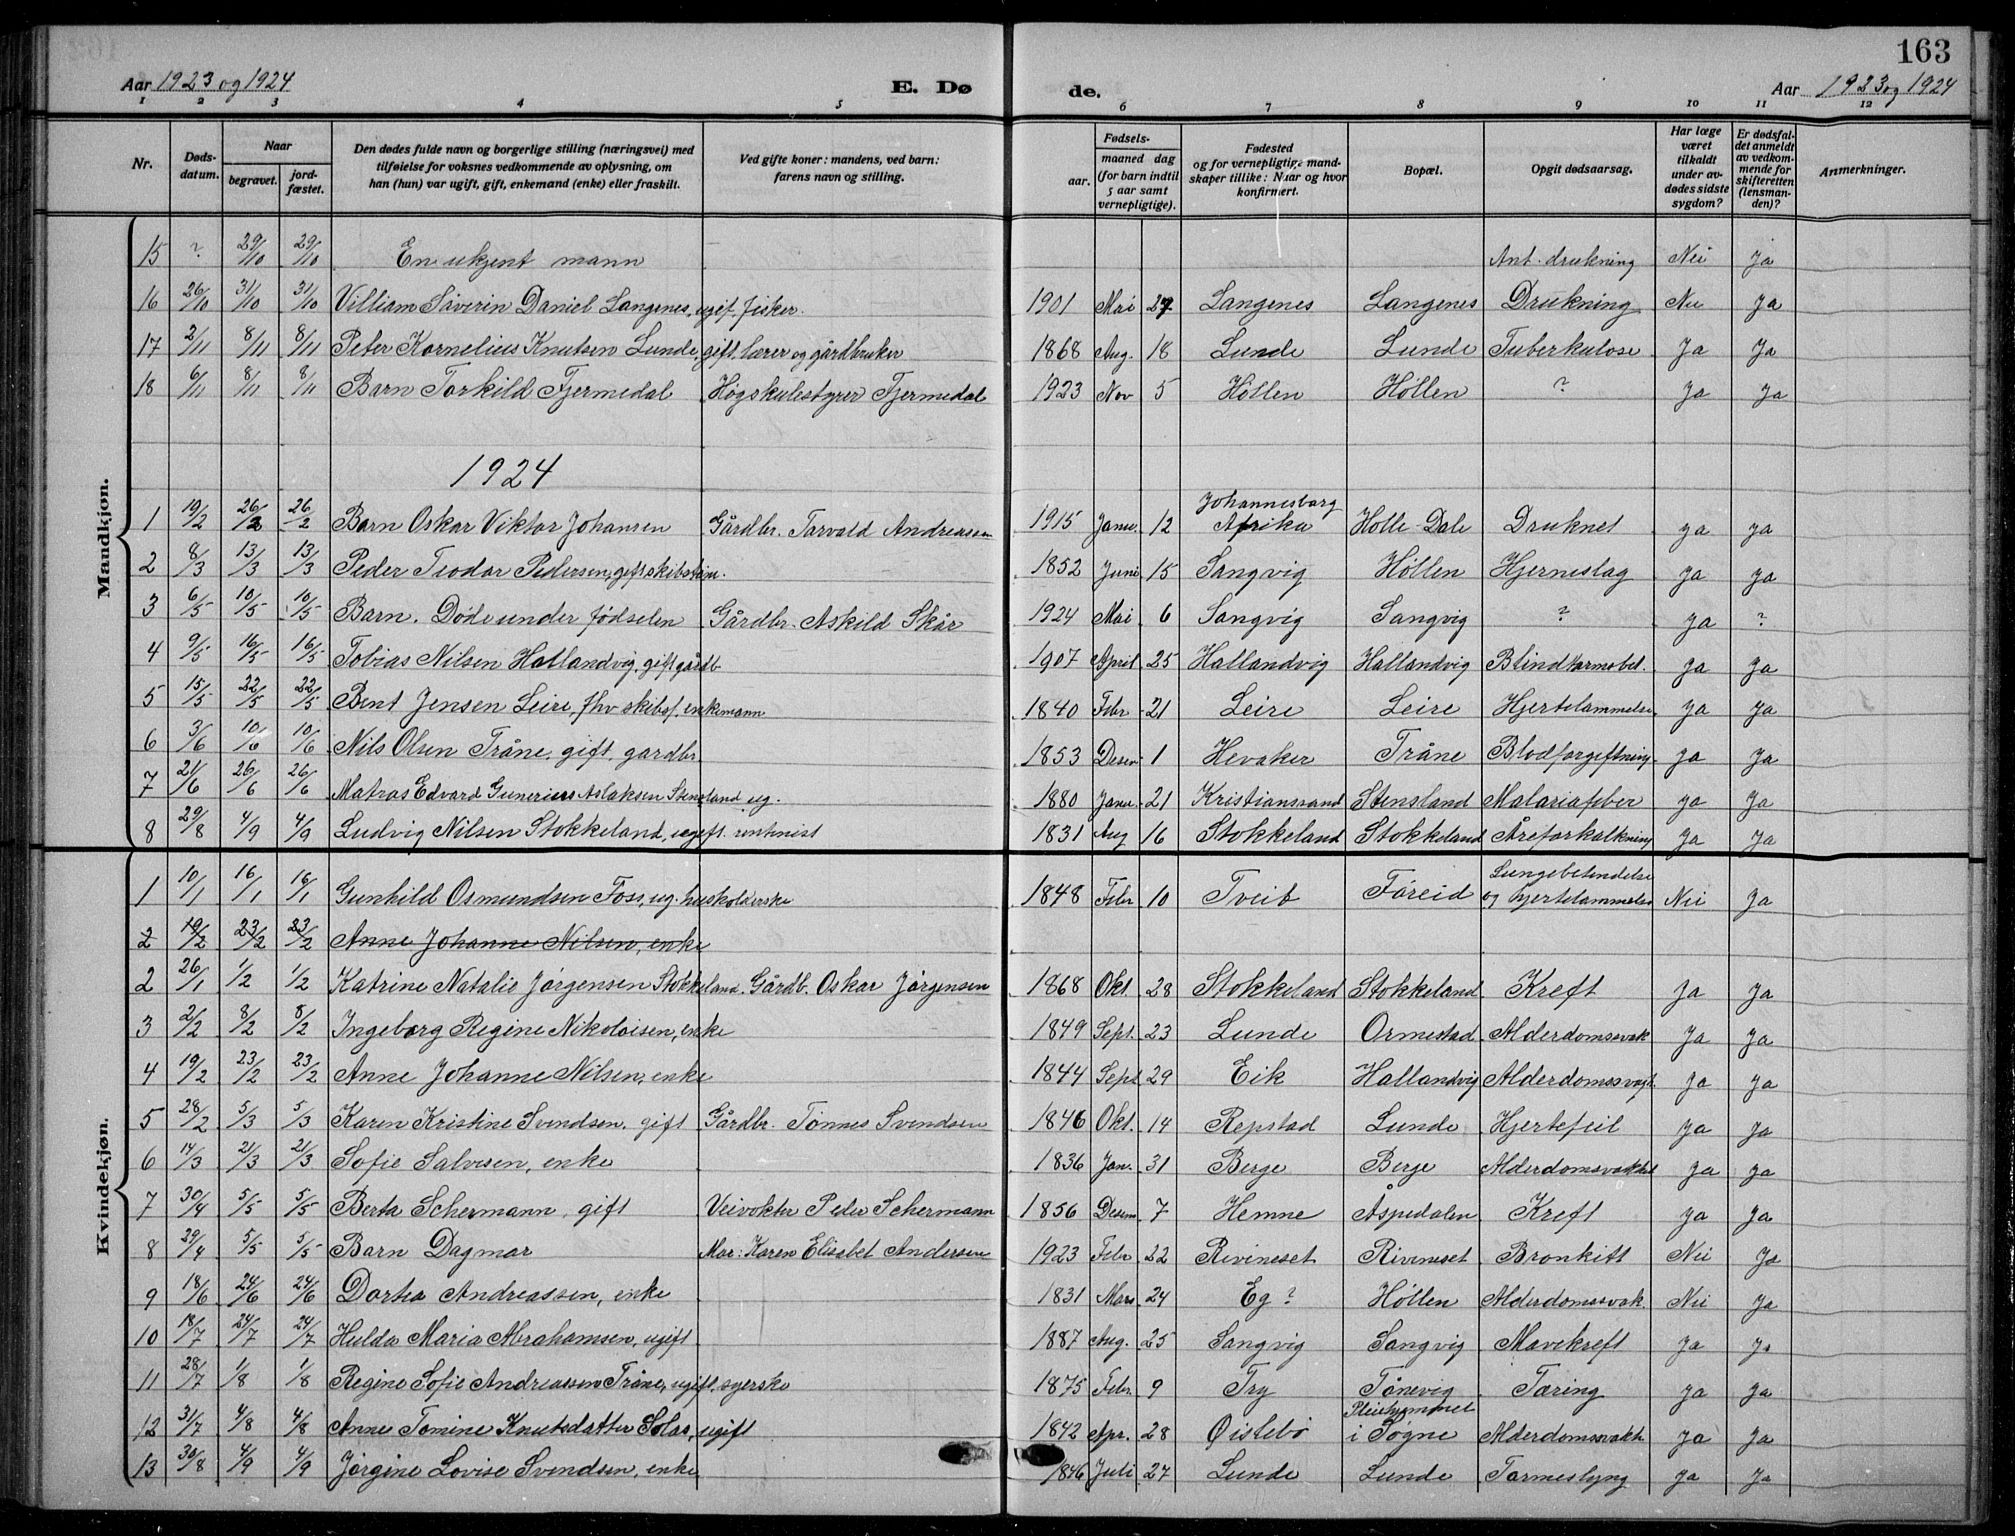 163
Aar 1923 og 1924 E. Dø de. Aar 1923 og 1924
1 2 3 4 5 6 7 8 9 10 11 12
Nr. Dødsdatum. Naar begravet. jordfæstet. Den dødes fulde navn og borgerlige stilling (næringsvei) med tilføielse for voksnes vedkommende av oplysning, om han (hun) var ugift, gift, enkemand (enke) eller fraskilt. Ved gifte koner: mandens, ved barn: farens navn og stilling. Fødsels- aar. maaned dag (for barn indtil 5 aar samt vernepligtige). Fødested og for vernepligtige mandskaper tillike: Naar og hvor konfirmert. Bopæl. Opgit dødsaarsag. Har læge været tilkaldt under avdødes sidste sygdom? Er dødsfaldet anmeldt av vedkommende for skifteretten (lensmanden)? Anmerkninger.
Mandkjøn.
15 ? 29/10 29/10 En ukjent mann Ant. drukning Nei Ja
16 26/10 31/10 31/10 Villiam Søverin Daniel Langenes, ugif. fisker. 1901 Mai 27 Langenes Langenes Drukning Nei Ja
17 2/11 8/11 8/11 Peter Kornelius Knutsen Lunde, gift. lærer og gårdbruker 1868 Aug. 18 Lunde Lunde Tuberkulose Ja Ja
18 6/11 8/11 8/11 Barn Torkild Fjermedal Høgskulestyrer Fjermedal 1923 Nov 5 Høllen Høllen ? Ja Ja
1924
1 19/2 26/2 26/2 Barn Oskar Viktor Johansen Gårdbr. Torvald Andreassen 1915 Janu. 12 Johannesborg Afrika Holle-Dale Druknet Ja Ja
2 8/3 13/3 13/3 Peder Teodor Pedersen, gift skibstøm. 1852 Juni 15 Langvig Høllen Hjerneslag Ja Ja
3 6/5 10/5 10/5 Barn. Døde under fødselen Gårdbr. Askild Skår 1924 Mai 6 Langvig Langvig ? Ja ?
4 9/5 16/5 16/5 Tobias Nilsen Hallandvig, gift gårdb 1907 April 25 Hallandvig Hallandvig Blindtarmsbet. Ja Ja
5 15/5 22/5 22/5 Bent Jensen Leire, fhv skibsf. enkemann 1840 Febr 21 Leire Leire Hjertelammelse Ja Ja
6 3/6 10/6 10/6 Nils Olsen Tråne, gift. gardbr. 1853 Desem 1 Hevaker Tråne Blodforgiftning Ja Ja
7 21/6 26/6 26/6 Matras Edvard Gunerius Aslaksen Stensland ug. 1880 Janu. 21 Kristianssand Stensland Malariafeber Ja Ja
8 29/8 4/9 4/9 Ludvig Nilsen Stokkeland, ugift. rentenist 1831 Aug 16 Stokkeland Stokkeland Åreforkalkning Ja Ja
Kvindekjøn.
1 10/1 16/1 16/1 Gunhild Osmundsen Foss, ug. husholderske 1848 Febr 10 Tveit Føreid Lungebetendelse og hjertelammelse Nei Ja
2 19/2 23/2 23/2 Anne Johanne Nilsen, enke
2 26/1 1/2 1/2 Katrine Natalie Jørgensen Stokkeland. Gårdb. Oskar Jørgensen 1868 Okt. 28 Stokkeland Stokkeland Kreft Ja Ja
3 2/2 8/2 8/2 Ingeborg Regine Nikolaisen, enke 1849 Sept. 23 Lunde Ormestad Alderdomssvak Ja Ja
4 19/2 23/2 23/2 Anne Johanne Nilsen, enke 1844 Sept 29 Eik Hallandvig Alderdomssvagt Ja Ja
5 28/2 5/3 5/3 Karen Kristine Svendsen, gift Gårdbr. Tønnes Svendsen 1846 Okt. 14 Repstad Lunde Hjertefeil Ja Ja
6 14/3 21/3 21/3 Sofie Salvesen, enke 1836 Jan. 31 Berge Berge Alderdomsvakhet Ja Ja
7 30/4 5/5 5/5 Berta Schermann, gift Veivokter Peder Schermann 1856 Desem 7 Hemne Åspedalen Kreft Ja Ja
8 29/4 5/5 5/5 Barn Dagmar Mor: Karen Elisabet Andersen 1923 Febr 22 Rivineset Rivineset Bronkitt Nei Ja
9 18/6 24/6 24/6 Dortea Andreassen, enke 1831 Mars 24 Eg ? Høllen Alderdomssvak Nei Ja
10 18/7 24/7 24/7 Hulda Maria Abrahamsen, ugift 1887 Aug. 25 Langvig Langvig Mavekreft Ja Ja
11 28/7 1/8 1/8 Regine Sofie Andreassen Tråne, ugift, syerske 1875 Febr. 9 Try Tånevig Tæring Ja Ja
12 31/7 4/8 4/8 Anne Tomine Knutsdatter Solås, ugift 1842 Apr. 28 Øislebø Pleiehjemmet i Søgne Alderdomssvakh Ja Ja
13 30/8 4/9 4/9 Jørgine Lovise Svendsen, enke 1846 Juli 27 Lunde Lunde Tarmeslyng Ja Ja